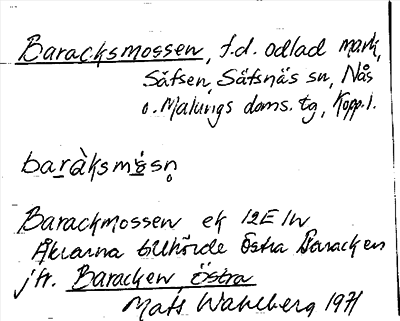 Baracksmossen, f.d. odlad mark,
Säfsen, Säfsnäs sn, Nås
o. Malungs doms. tg, Kopp.l.
baràksmòsn̥
Barackmossen ek 12E 1h
Åkrarna tillhörde Östra Baracken
jfr. Baracken, Östra
Mats Wahlberg 1971